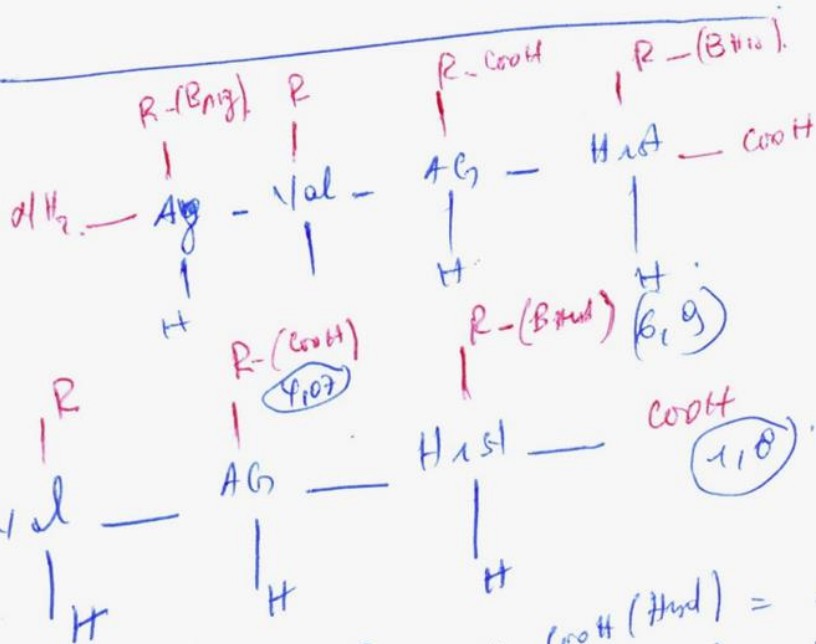 R-(BArg) R R-COOH R-(BHis).
NH2 - Arg - Val - AG - Hist - COOH
H H H
R R-(COOH) R-(BHist) (6,9)
4,07
Val - AG - Hist - COOH 1,8
H H H
COOH (Hist) =